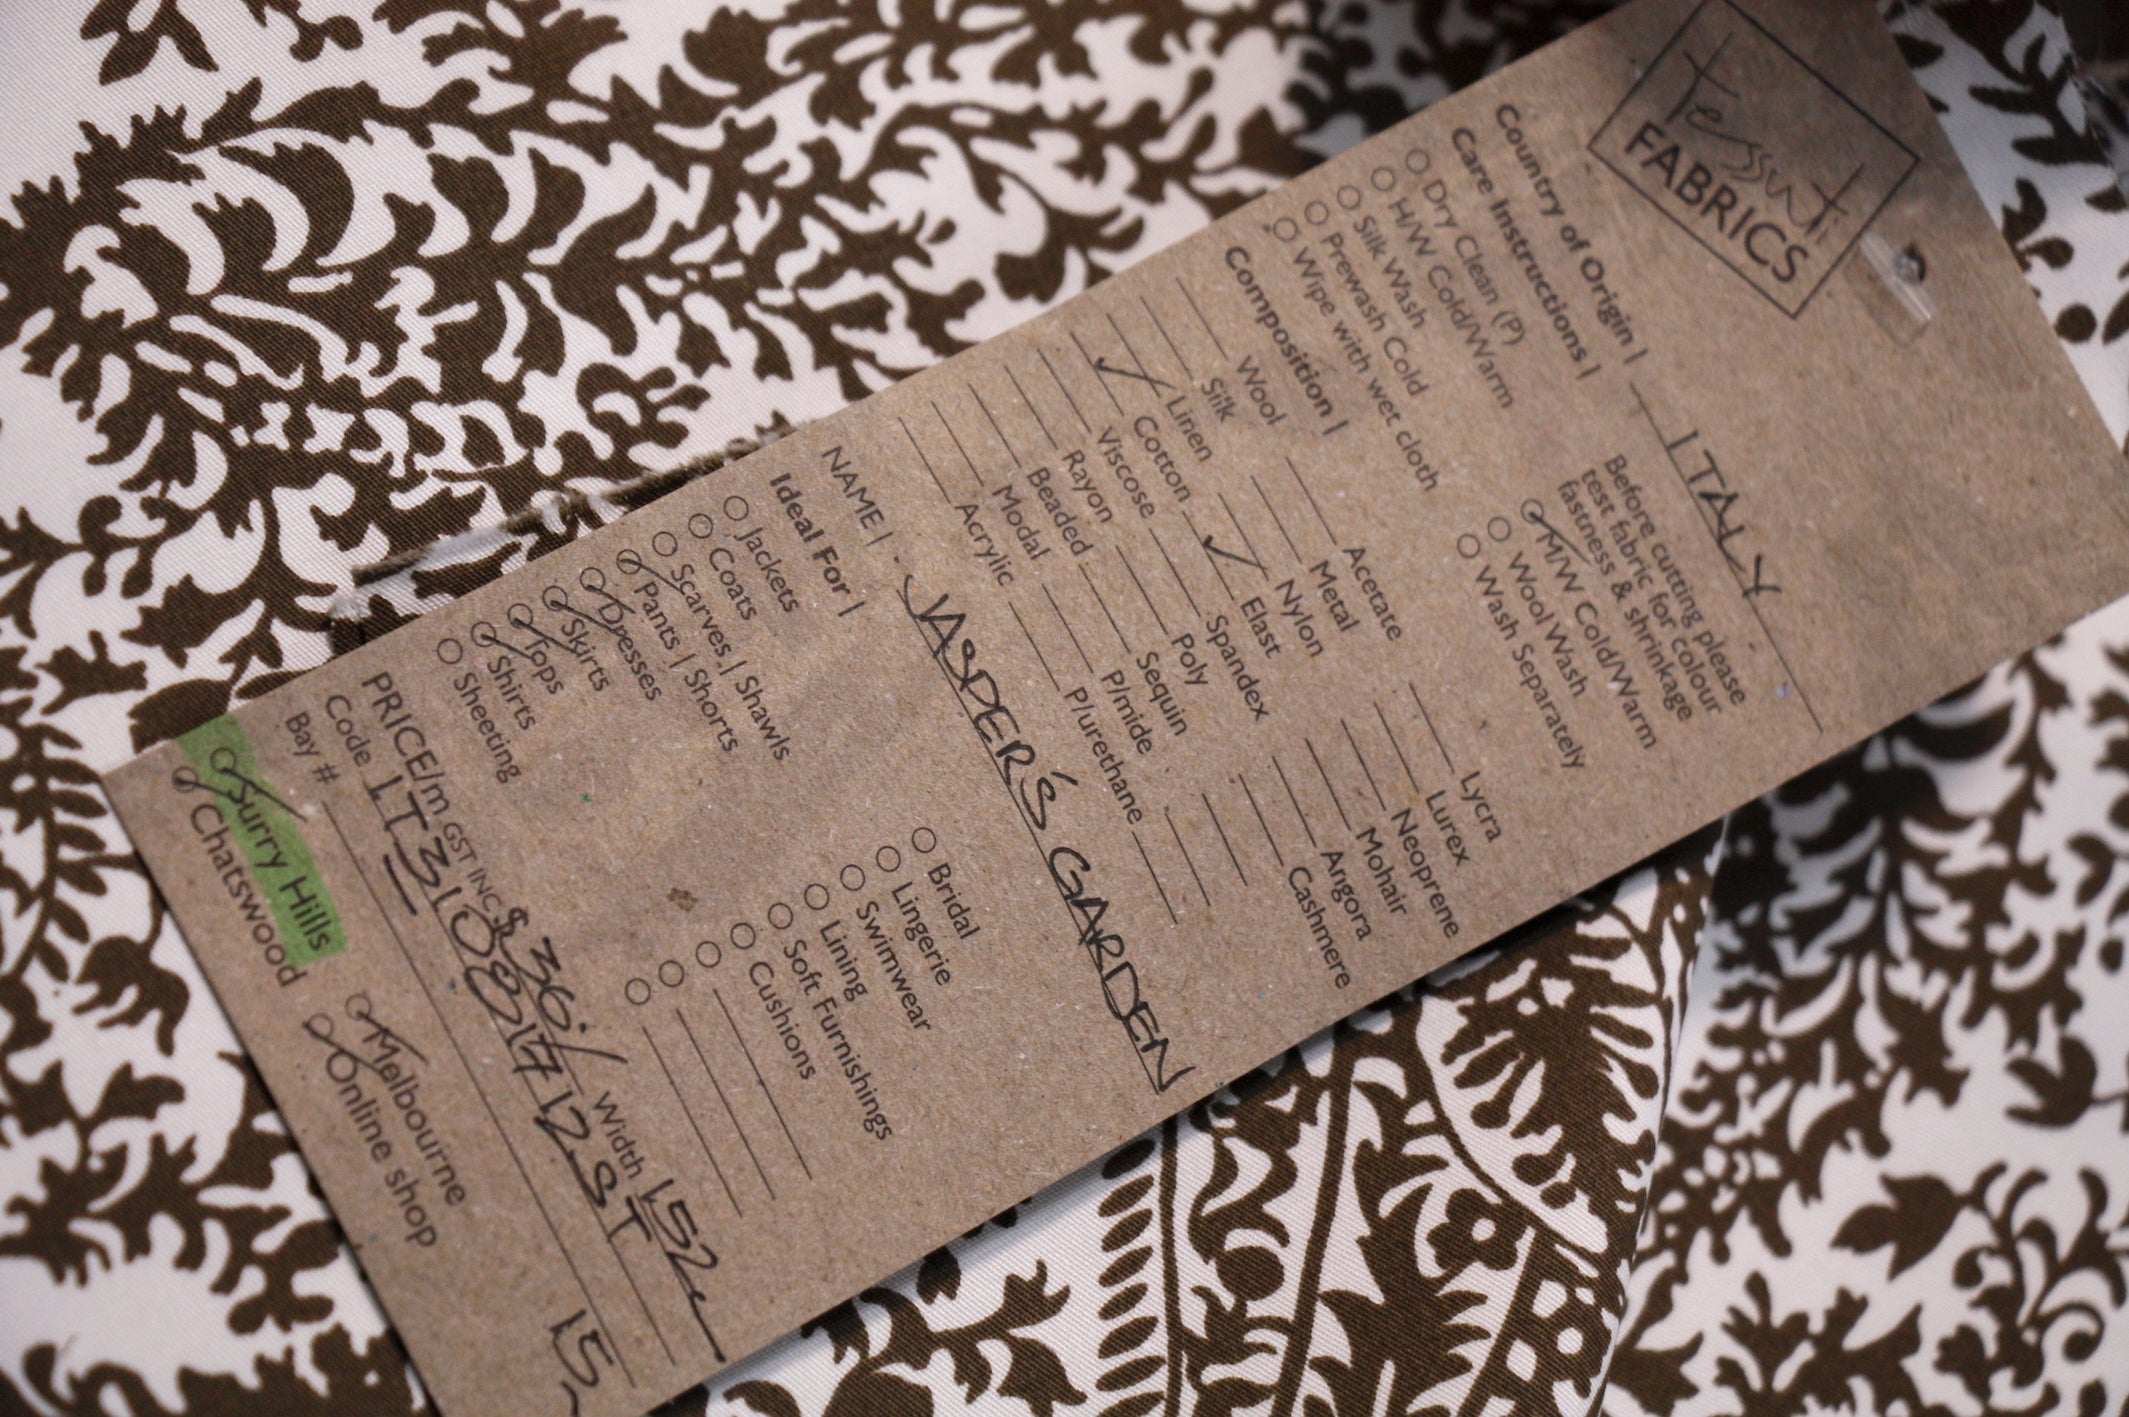 Tessuti
FABRICS
Country of Origin | ITALY
Care Instructions |
Dry Clean (P)
H/W Cold/Warm
Silk Wash
Prewash Cold
Wipe with wet cloth
Before cutting please
test fabric for colour
fastness & shrinkage
M/W Cold/Warm
Wool Wash
Wash Separately
Composition |
Wool
Silk
Linen
Cotton
Viscose
Rayon
Beaded
Modal
Acrylic
Acetate
Metal
Nylon
Elast
Spandex
Poly
Sequin
P/mide
P/urethane
Lycra
Lurex
Neoprene
Mohair
Angora
Cashmere
NAME | JASPER'S GARDEN
Ideal For |
Jackets
Coats
Scarves | Shawls
Pants | Shorts
Dresses
Skirts
Tops
Shirts
Sheeting
Bridal
Lingerie
Swimwear
Lining
Soft Furnishings
Cushions
PRICE/m GST INC. $36./ Width 152
Code
Bay #
Surry Hills
Chatswood
Melbourne
Online shop